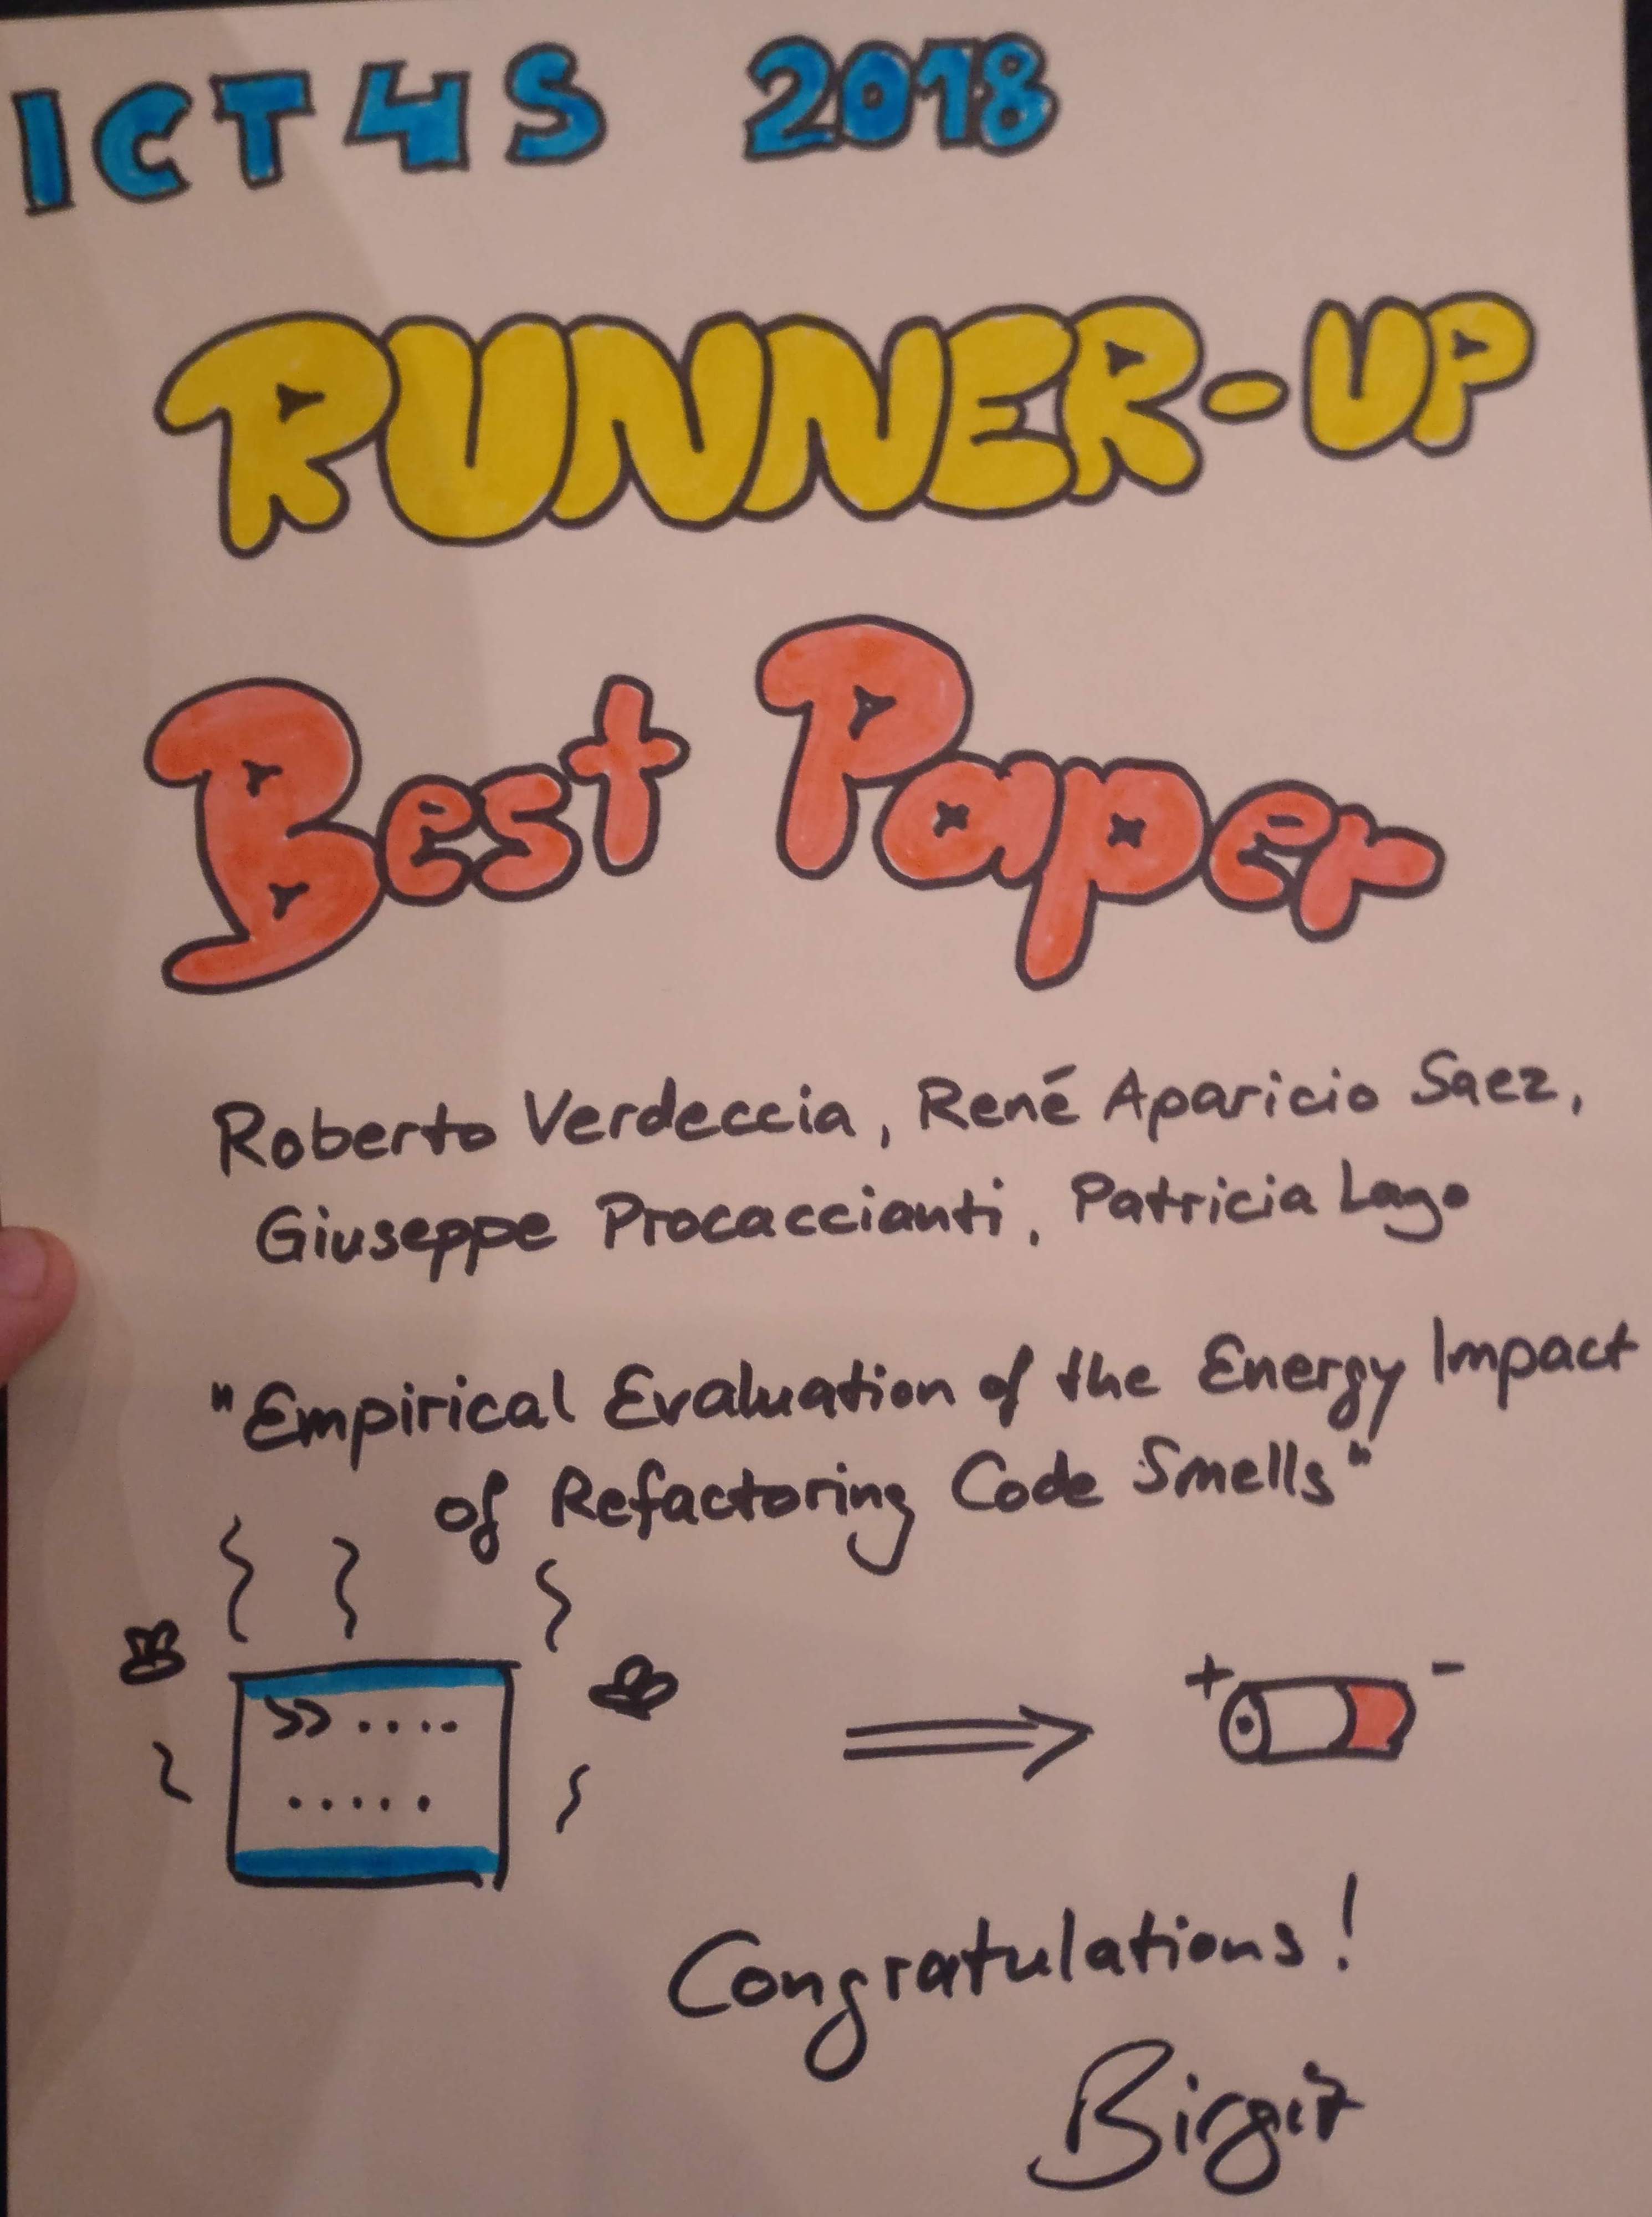 ICT4S 2018
RUNNER-UP
Best Paper
Roberto Verdeccia, René Aparicio Saez,
Giuseppe Procaccianti, Patricia Lago
"Empirical Evaluation of the Energy Impact
of Refactoring Code Smells"
>> ....
.....
+ -
Congratulations!
Birgit